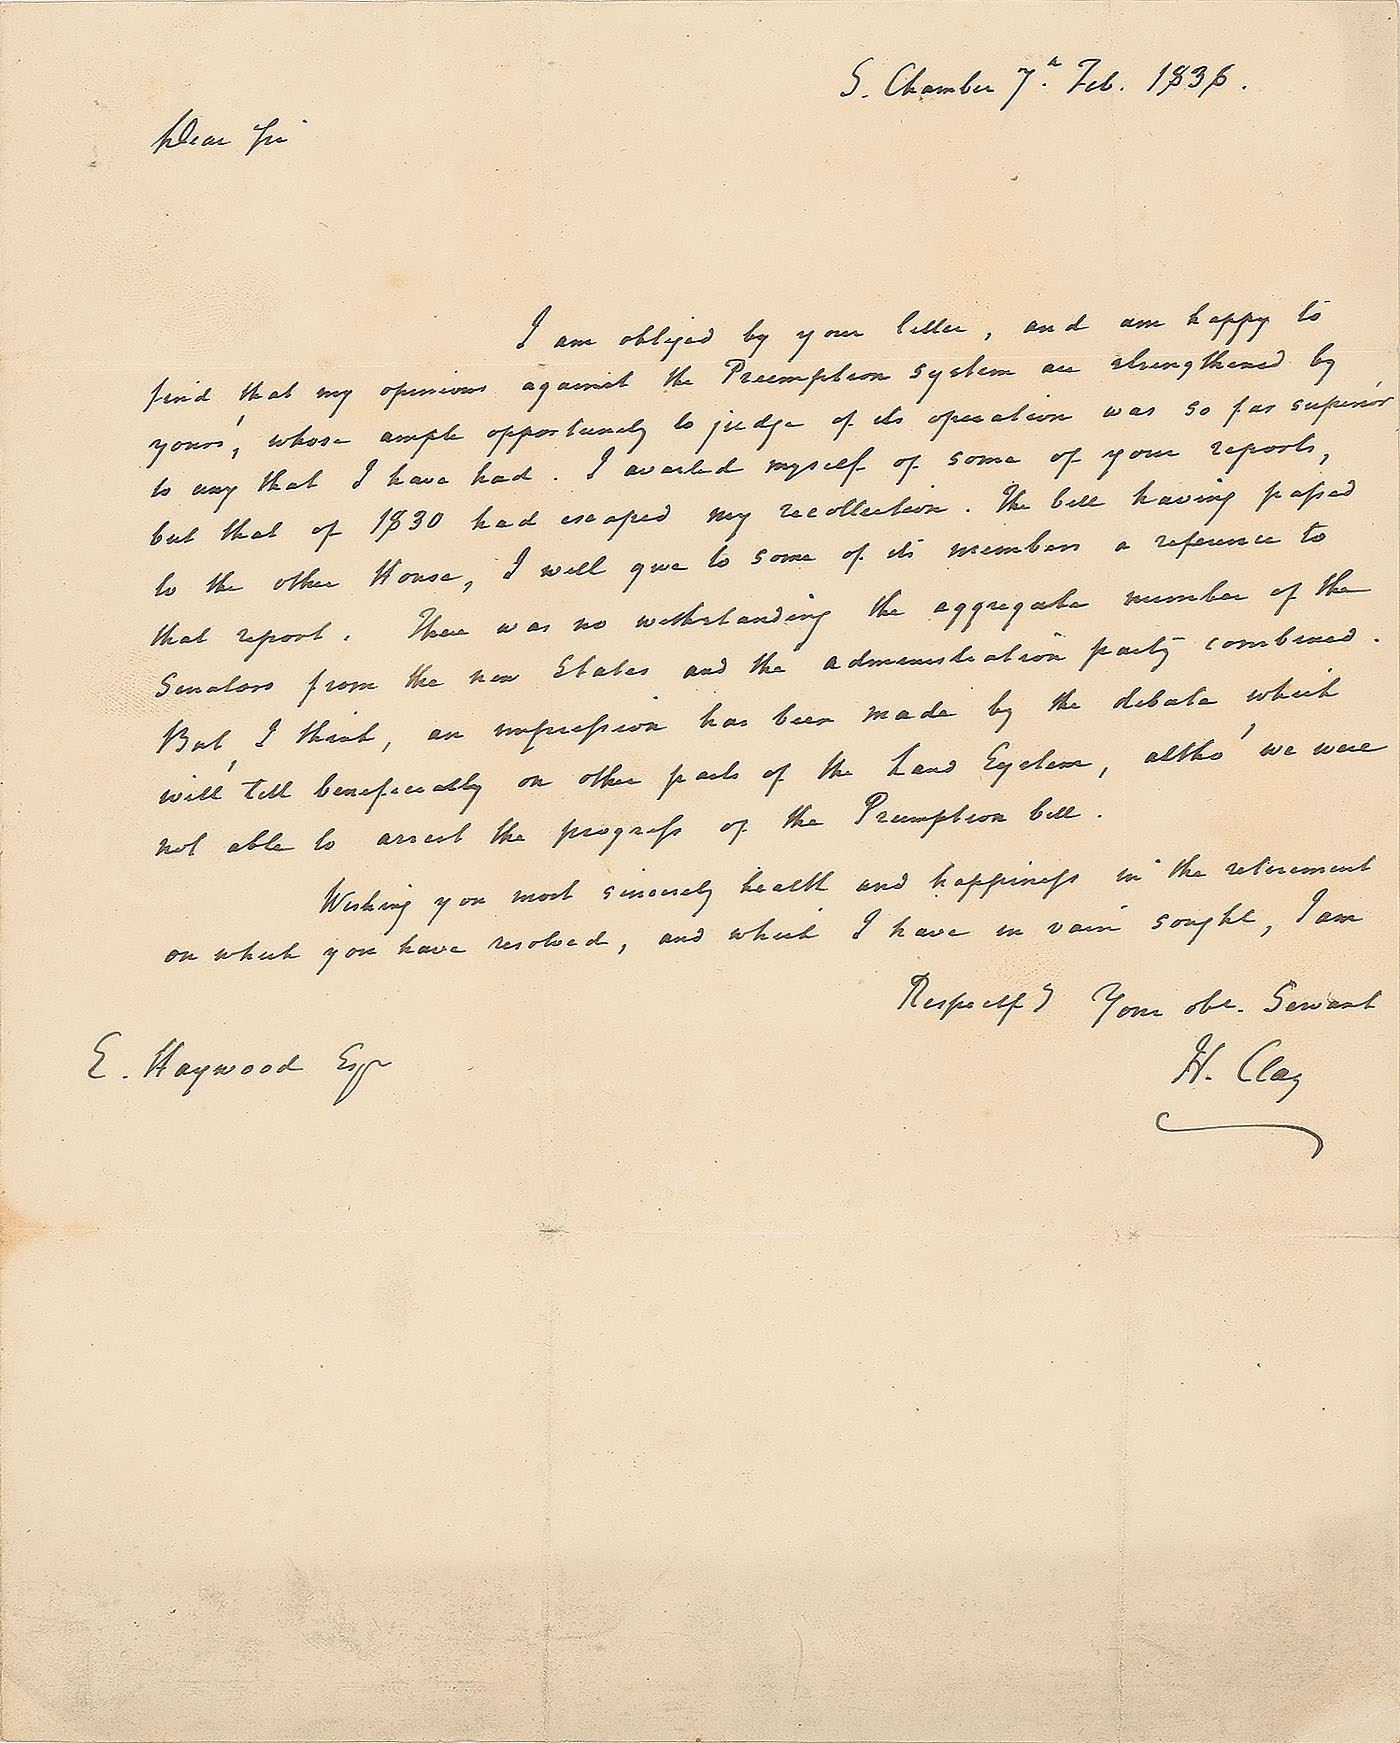 S. Chamber 7.h Feb. 1838.
Dear Sir
I am obliged by your letter, and am happy to
find that my opinions against the Preemption system are strengthened by
yours, whose ample opportunity to judge of its operation was so far superior
to any that I have had. I availed myself of some of your reports,
but that of 1830 had escaped my recollection. The bill having passed
to the other House, I will give to some of its members a reference to
that report. There was no withstanding the aggregate number of the
Senators from the new States and the administration party combined.
But, I think, an impression has been made by the debate which
will tell beneficially on other parts of the Land System, altho' we were
not able to arrest the progress of the Preemption bill.
Wishing you most sincerely health and happiness in the retirement
on which you have resolved, and which I have in vain sought, I am
Respectfy Your obt. Servant
H. Clay
E. Haywood Esqr